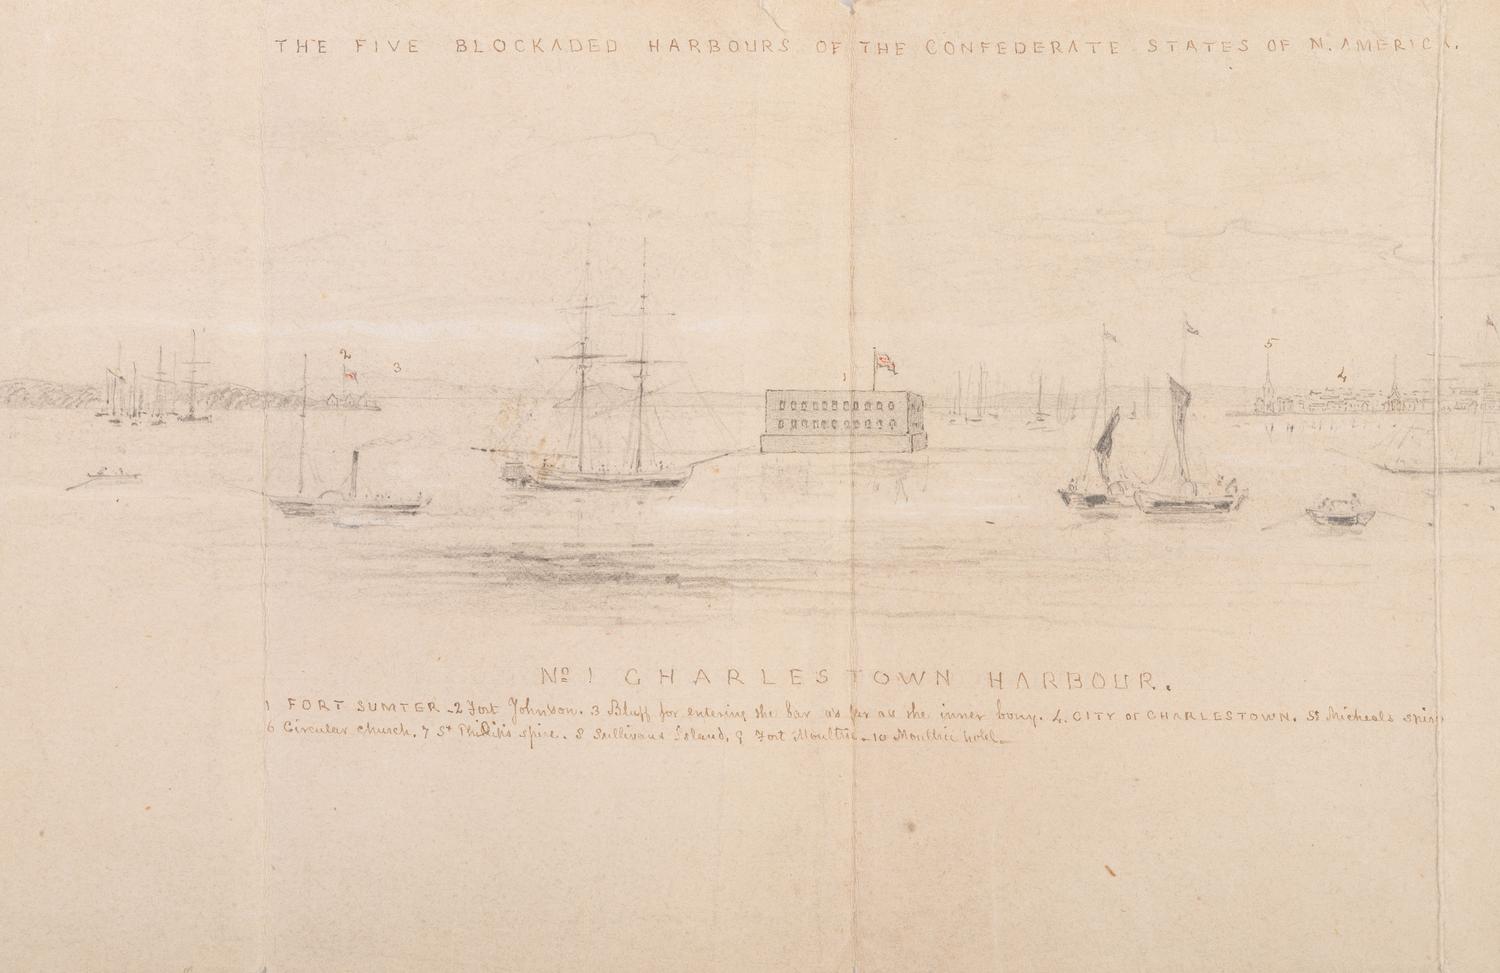 THE FIVE BLOCKADED HARBOURS OF THE CONFEDERATE STATES OF N. AMERICA.
2
3
1
5
4
No 1 CHARLESTOWN HARBOUR.
1 FORT SUMTER - 2 Fort Johnson. 3 Bluff for entering the bar as far as the inner bouy. 4. CITY OF CHARLESTOWN. 5 St Micheals spire
6 Circular church. 7 St Phillips spire. 8 Sullivans Island, 9 Fort Moultrie - 10 Moultrie hotel_